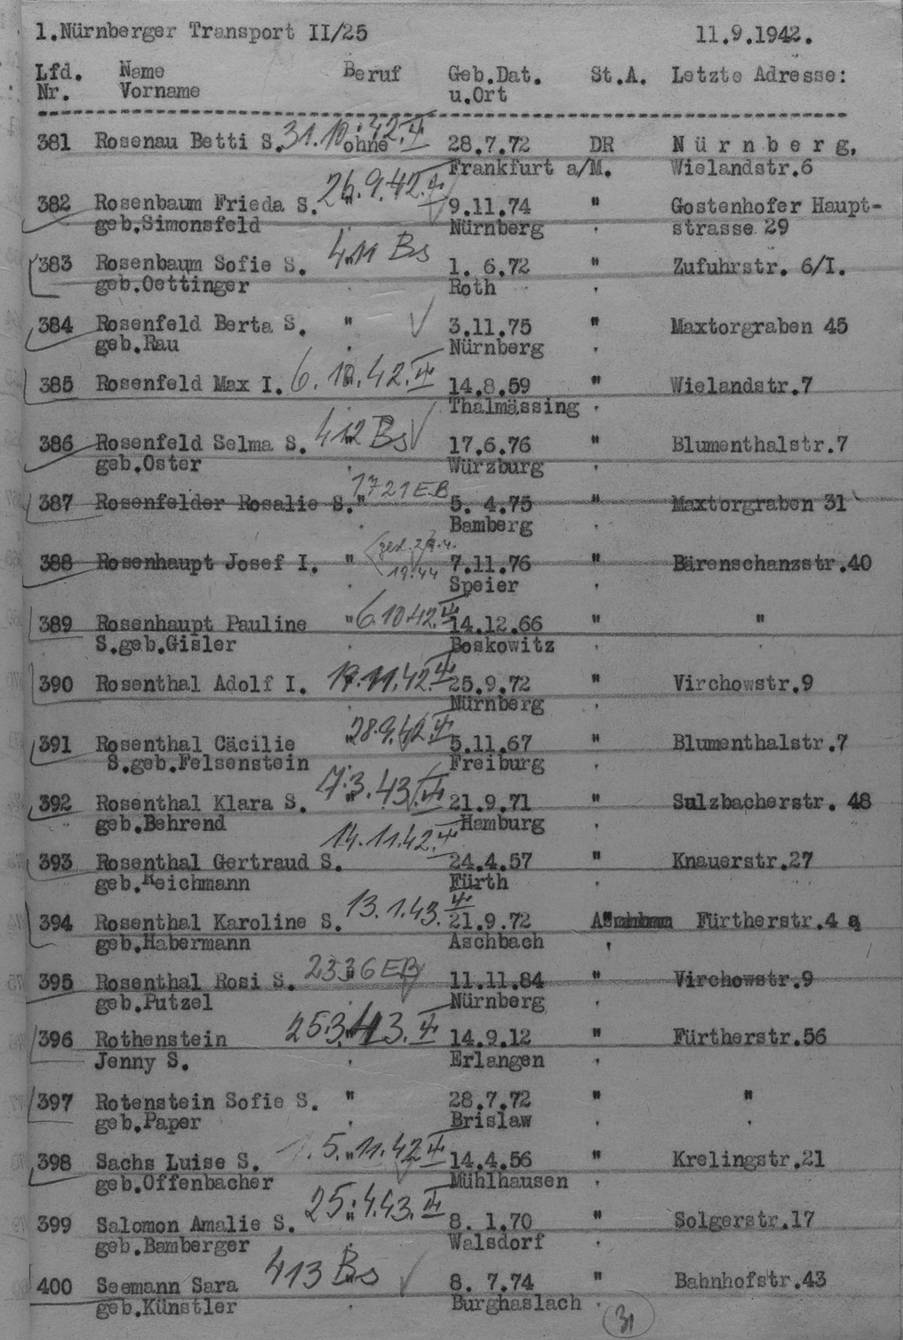 1.Nürnberger Transport II/25 11.9.1942.
Lfd. Name Beruf Geb.Dat. St.A. Letzte Adresse:
Nr. Vorname u.Ort
381 Rosenau Betti S. 31.10.42. ohne 28.7.72 DR N ü r n b e r g,
Frankfurt a/M. Wielandstr.6
382 Rosenbaum Frieda S. " 26.9.42. 9.11.74 " Gostenhofer Haupt-
geb.Simonsfeld Nürnberg strasse 29
383 Rosenbaum Sofie S. 411 Bs 1. 6.72 " Zufuhrstr. 6/I.
geb.Oettinger Roth
384 Rosenfeld Berta S. " 3.11.75 " Maxtorgraben 45
geb.Rau Nürnberg
385 Rosenfeld Max I. 6.10.42. 14.8.59 " Wielandstr.7
Thalmässing
386 Rosenfeld Selma S. 412 Bs 17.6.76 " Blumenthalstr.7
geb.Oster Würzburg
387 Rosenfelder Rosalie S. " 1721 EB 5. 4.75 " Maxtorgraben 31
Bamberg
388 Rosenhaupt Josef I. " 7.11.76 " Bärenschanzstr.40
Speier
389 Rosenhaupt Pauline " 6.10.42. 14.12.66 " "
S.geb.Gisler Boskowitz
390 Rosenthal Adolf I. 19.11.42. 25.9.72 " Virchowstr.9
Nürnberg
391 Rosenthal Cäcilie " 28.9.42 5.11.67 " Blumenthalstr.7
S.geb.Felsenstein Freiburg
392 Rosenthal Klara S. " 7.3.43. 21.9.71 " Sulzbacherstr. 48
geb.Behrend Hamburg
393 Rosenthal Gertraud S. 14.11.42. 24.4.57 " Knauerstr.27
geb.Reichmann Fürth
394 Rosenthal Karoline S. 13.1.43. 21.9.72 Fürtherstr.4 a
geb.Habermann Aschbach
395 Rosenthal Rosi S. 2336 EB 11.11.84 " Virchowstr.9
geb.Putzel Nürnberg
396 Rothenstein 25.3.43. 14.9.12 " Fürtherstr.56
Jenny S. Erlangen
397 Rotenstein Sofie S. " 28.7.72 " "
geb.Paper Brislaw
398 Sachs Luise S. 5. " 11.42 14.4.56 " Krelingstr.21
geb.Offenbacher Mühlhausen
399 Salomon Amalie S. 25.4.43. 8. 1.70 " Solgerstr.17
geb.Bamberger Walsdorf
400 Seemann Sara 413 Bs 8. 7.74 " Bahnhofstr.43
geb.Künstler Burghaslach
31